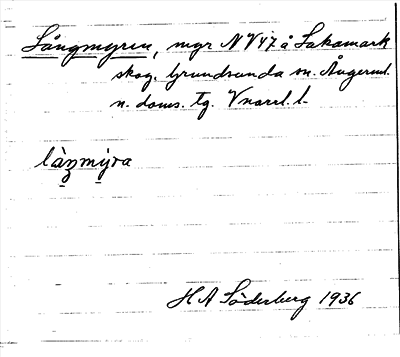 Långmyren, myr NV47 å Lakamark
skog. Grundsunda sn. Ångerml.
n. doms. tg. Vnorrl. l.
làŋmy̆ra
H A Söderberg 1936